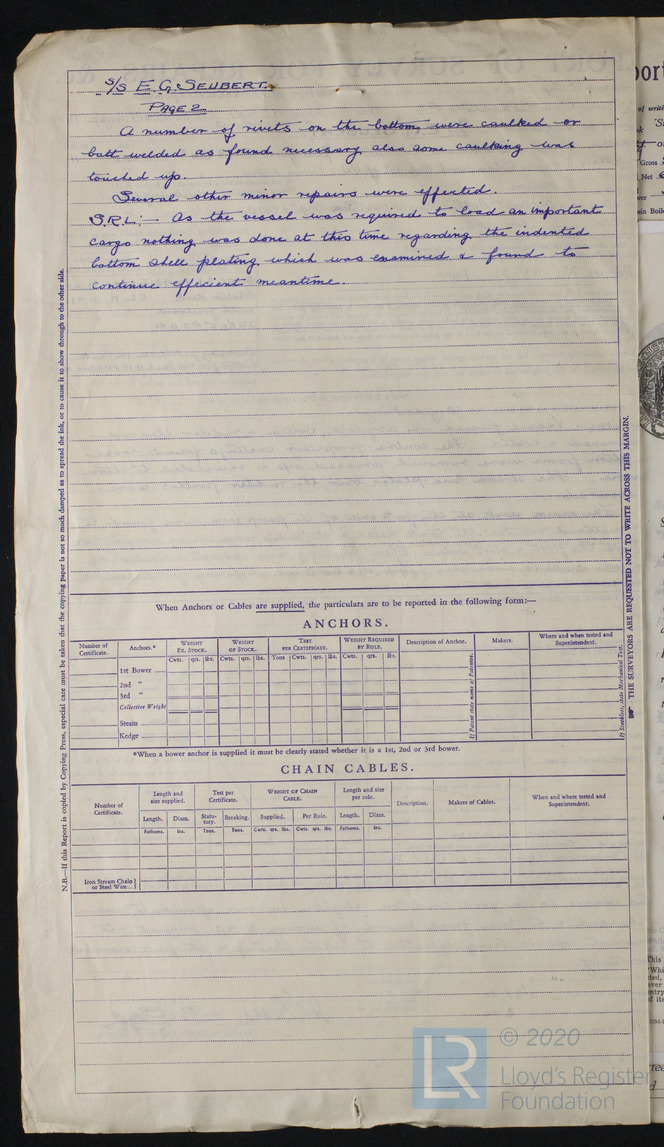 S/S E. G. SEUBERT.
PAGE 2
A number of rivets on the bottom were caulked or
butt welded as found necessary also some caulking was
touched up.
Several other minor repairs were effected.
S.R.L: – As the vessel was required to load an important
cargo nothing was done at this time regarding the indented
bottom shell plating which was examined & found to
continue efficient meantime.
N.B.—If this Report is copied by Copying Press, especial care must be taken that the copying paper is not so much damped as to spread the ink, or to cause it to show through to the other side.
☞ THE SURVEYORS ARE REQUESTED NOT TO WRITE ACROSS THIS MARGIN.
When Anchors or Cables are supplied, the particulars are to be reported in the following form:—
ANCHORS.
Number of Certificate. Anchors.* WEIGHT EX. STOCK. WEIGHT OF STOCK. TEST PER CERTIFICATE. WEIGHT REQUIRED BY RULE. Description of Anchor. Makers. Where and when tested and Superintendent.
Cwts. qrs. lbs. Cwts. qrs. lbs. Tons Cwts. qrs. lbs. Cwts. qrs. lbs.
1st Bower
2nd "
3rd "
Collective Weight
Steam
Kedge
If Patent state name of Patentee.
If Stockless, state Mechanical Test.
*When a bower anchor is supplied it must be clearly stated whether it is a 1st, 2nd or 3rd bower.
CHAIN CABLES.
Number of Certificate. Length and size supplied. Test per Certificate. WEIGHT OF CHAIN CABLE. Length and size per rule. Description. Makers of Cables. When and where tested and Superintendent.
Length. Diam. Statutory. Breaking. Supplied. Per Rule. Length. Diam.
Fathoms. Ins. Tons. Tons. Cwts. qrs. lbs. Cwts. qrs. lbs. Fathoms. Ins.
Iron Stream Chain or Steel Wire
LR
© 2020
Lloyd's Register
Foundation